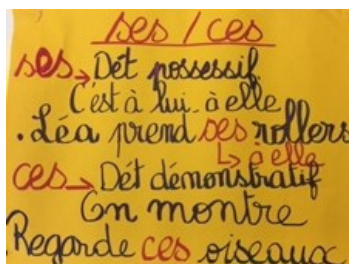 ses / ces
ses → Dét possessif
C'est à lui. à elle
. Léa prend ses rollers
↳ à elle
ces → Dét démonstratif
On montre
. Regarde ces oiseaux